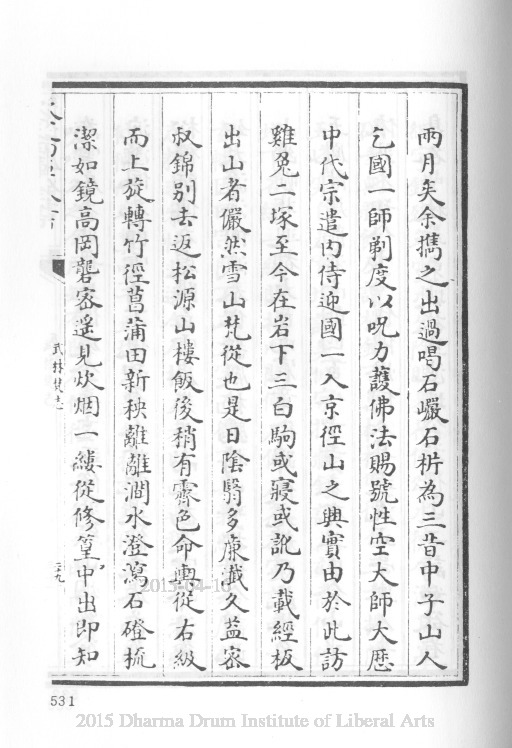 兩月矣余攜之出過喝石巖石析為三昔中子山人
乞國一師剃度以呪力護佛法賜號性空大師大厯
中代宗遣内侍迎國一入京徑山之興實由於此訪
雞兔二塚至今在岩下三白駒或寢或訛乃載經板
出山者儼然雪山梵從也是日陰翳多廉瀸久益密
叔錦别去返松源山樓飯後稍有霽色命輿從右級
而上旋轉竹徑菖蒲田新秧離離澗水澄瀉石磴梳
潔如鏡高岡礱密遙見炊烟一縷從修篁中出即知
武林梵志
二九
2015-04-10
531
2015 Dharma Drum Institute of Liberal Arts